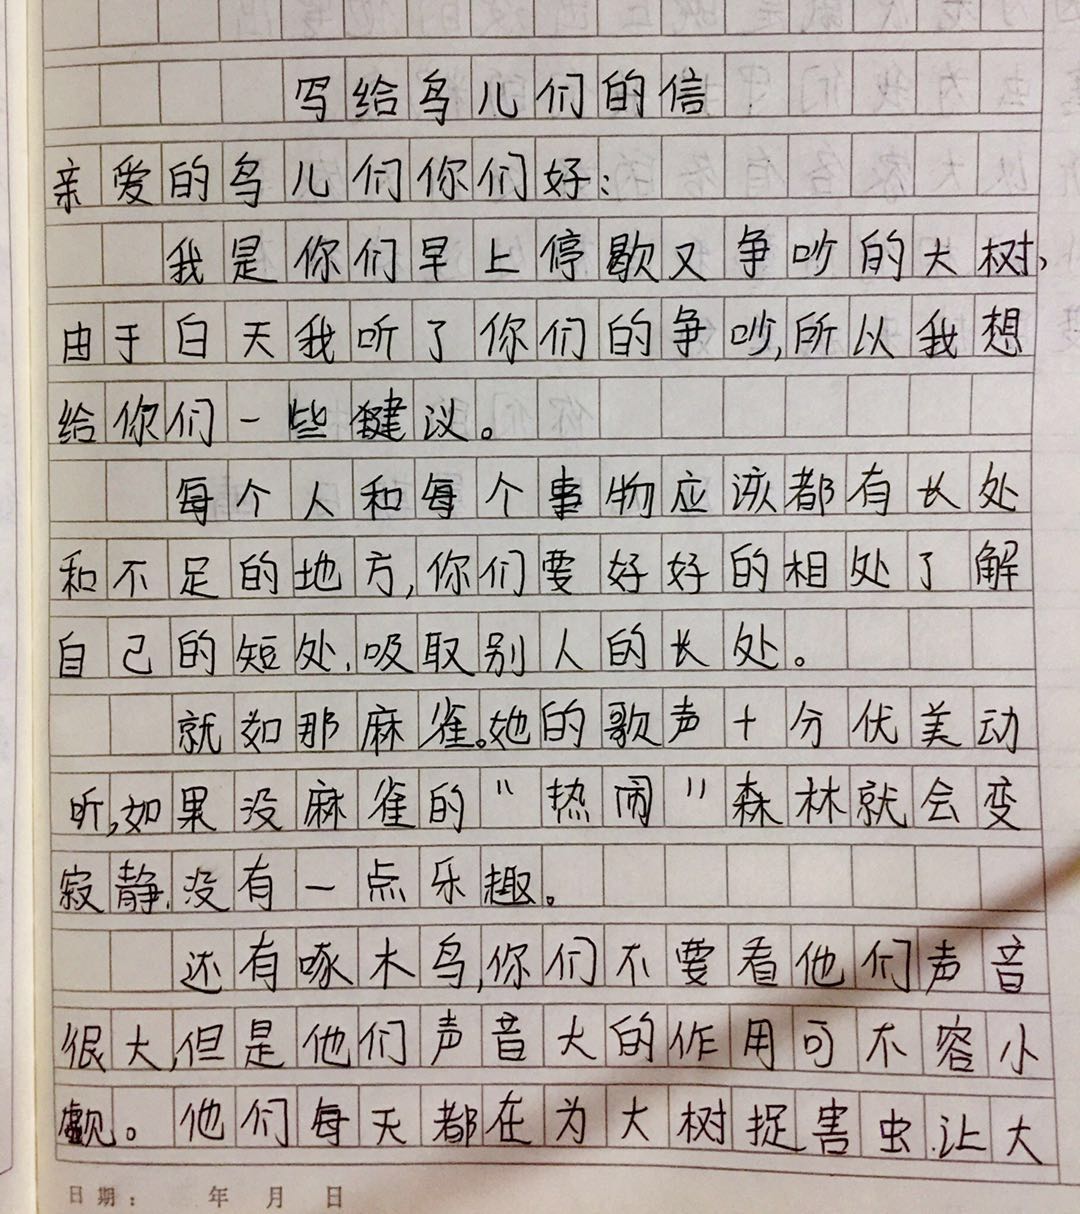 写给鸟儿们的信
亲爱的鸟儿们你们好:
我是你们早上停歇又争吵的大树,
由于白天我听了你们的争吵,所以我想
给你们一些键议。
每个人和每个事物应该都有长处
和不足的地方,你们要好好的相处了解
自己的短处,吸取别人的长处。
就如那麻雀。她的歌声十分优美动
听,如果没麻雀的“热闹”森林就会变
寂静,没有一点乐趣。
还有啄木鸟,你们不要看他们声音
很大,但是他们声音大的作用可不容小
觑。他们每天都在为大树捉害虫.让大
日期: 年 月 日